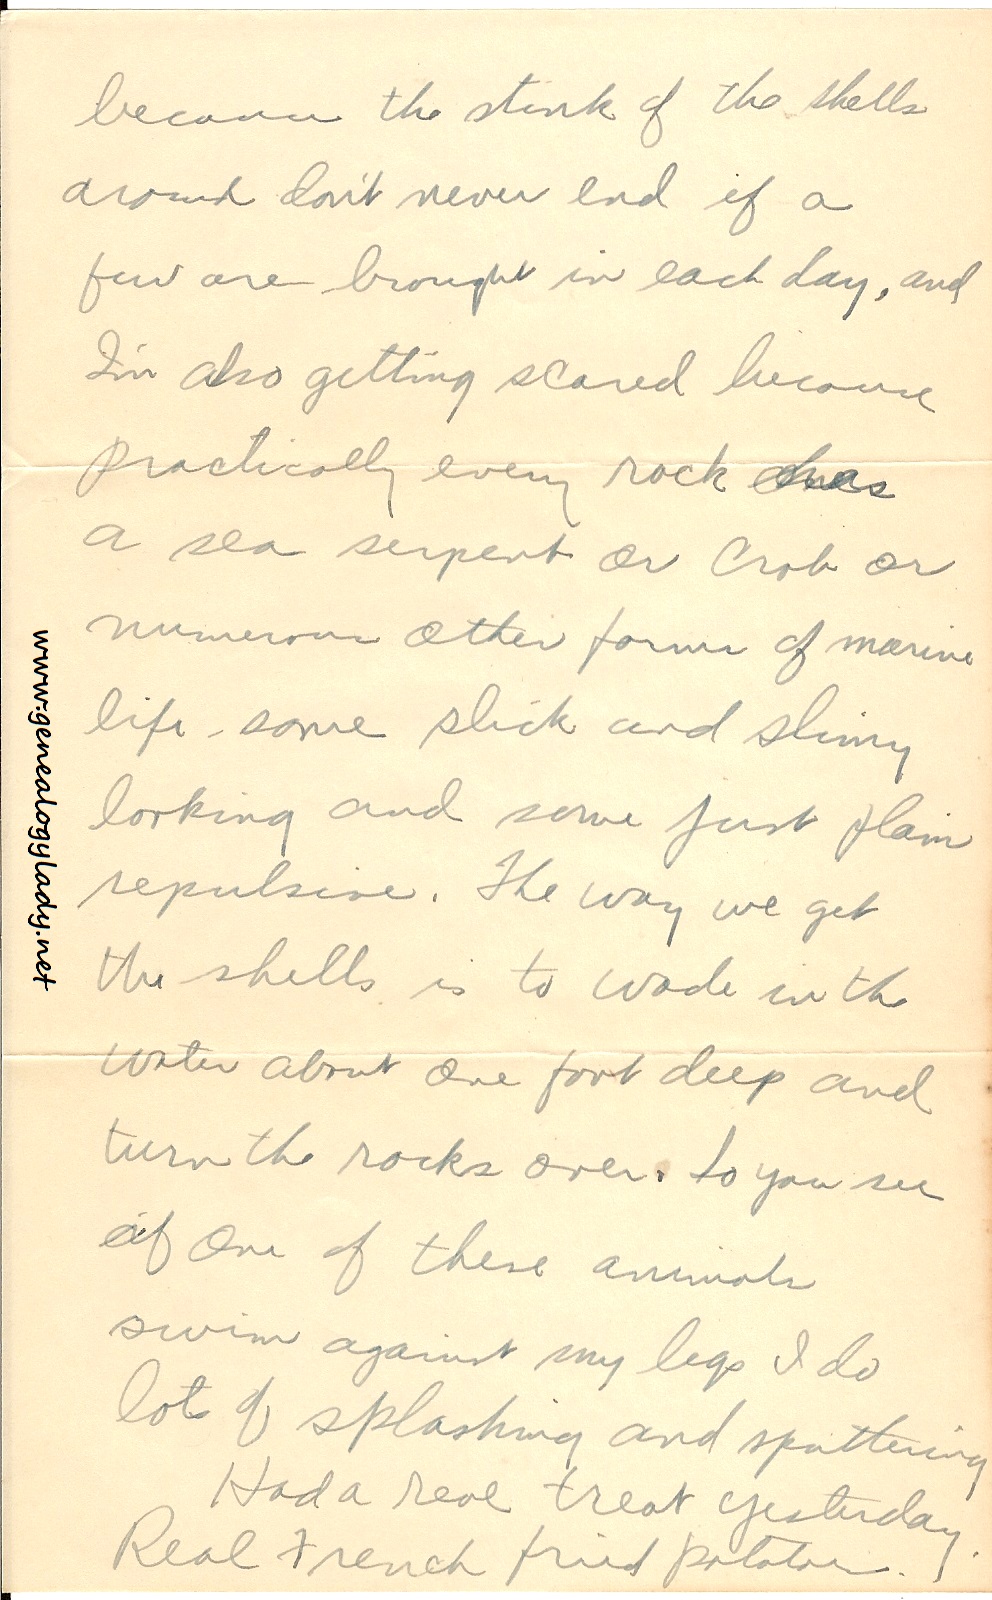 because the stink of the shells
around don't never end if a
few are brought in each day, and
I'm also getting scared because
practically every rock has
a sea serpent or crab or
numerous other forms of marine
life - some slick and slimy
looking and some just plain
repulsive. The way we get
the shells is to wade in the
water about one foot deep and
turn the rocks over. So you see
if one of these animals
swim against my legs I do
lots of splashing and sputtering
Had a real treat yesterday.
Real French fried potatoes.
www.genealogylady.net